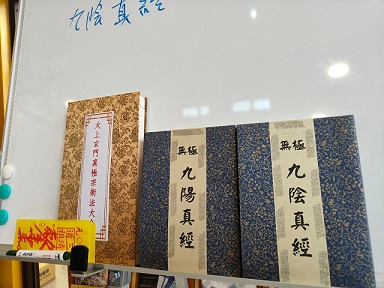 九陰真經
太上玄門真極宗術法大全
無極
九陽真經
無極
九陰真經